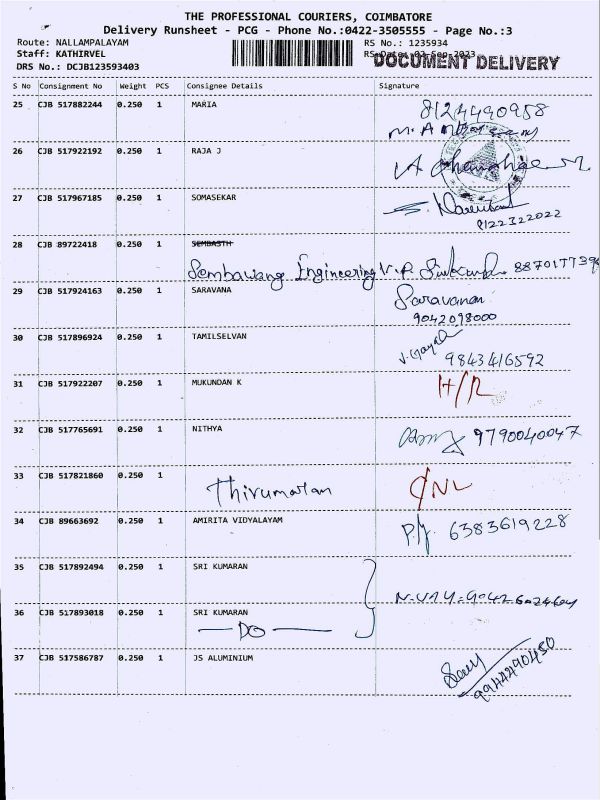 THE PROFESSIONAL COURIERS, COIMBATORE
Delivery Runsheet - PCG - Phone No.:0422-3505555 - Page No.:3
Route: NALLAMPALAYAM
RS No.: 1235934
Staff: KATHIRVEL
RS Date: 02-Sep-2023
DOCUMENT DELIVERY
DRS No.: DCJB123593403
S No Consignment No Weight PCS Consignee Details Signature
25 CJB 517882244 0.250 1 MARIA 8124490958
26 CJB 517922192 0.250 1 RAJA J
27 CJB 517967185 0.250 1 SOMASEKAR
9122322022
28 CJB 89722418 0.250 1 SEMBASTH
Sembawang Engineering
29 CJB 517924163 0.250 1 SARAVANA Saravanan
9042098000
30 CJB 517896924 0.250 1 TAMILSELVAN
9843416592
31 CJB 517922207 0.250 1 MUKUNDAN K H/R
32 CJB 517765691 0.250 1 NITHYA 9790040047
33 CJB 517821860 0.250 1
Thirumaran C/NL
34 CJB 89663692 0.250 1 AMIRITA VIDYALAYAM 6383619228
35 CJB 517892494 0.250 1 SRI KUMARAN
36 CJB 517893018 0.250 1 SRI KUMARAN
DO
37 CJB 517586787 0.250 1 JS ALUMINIUM
9944490450